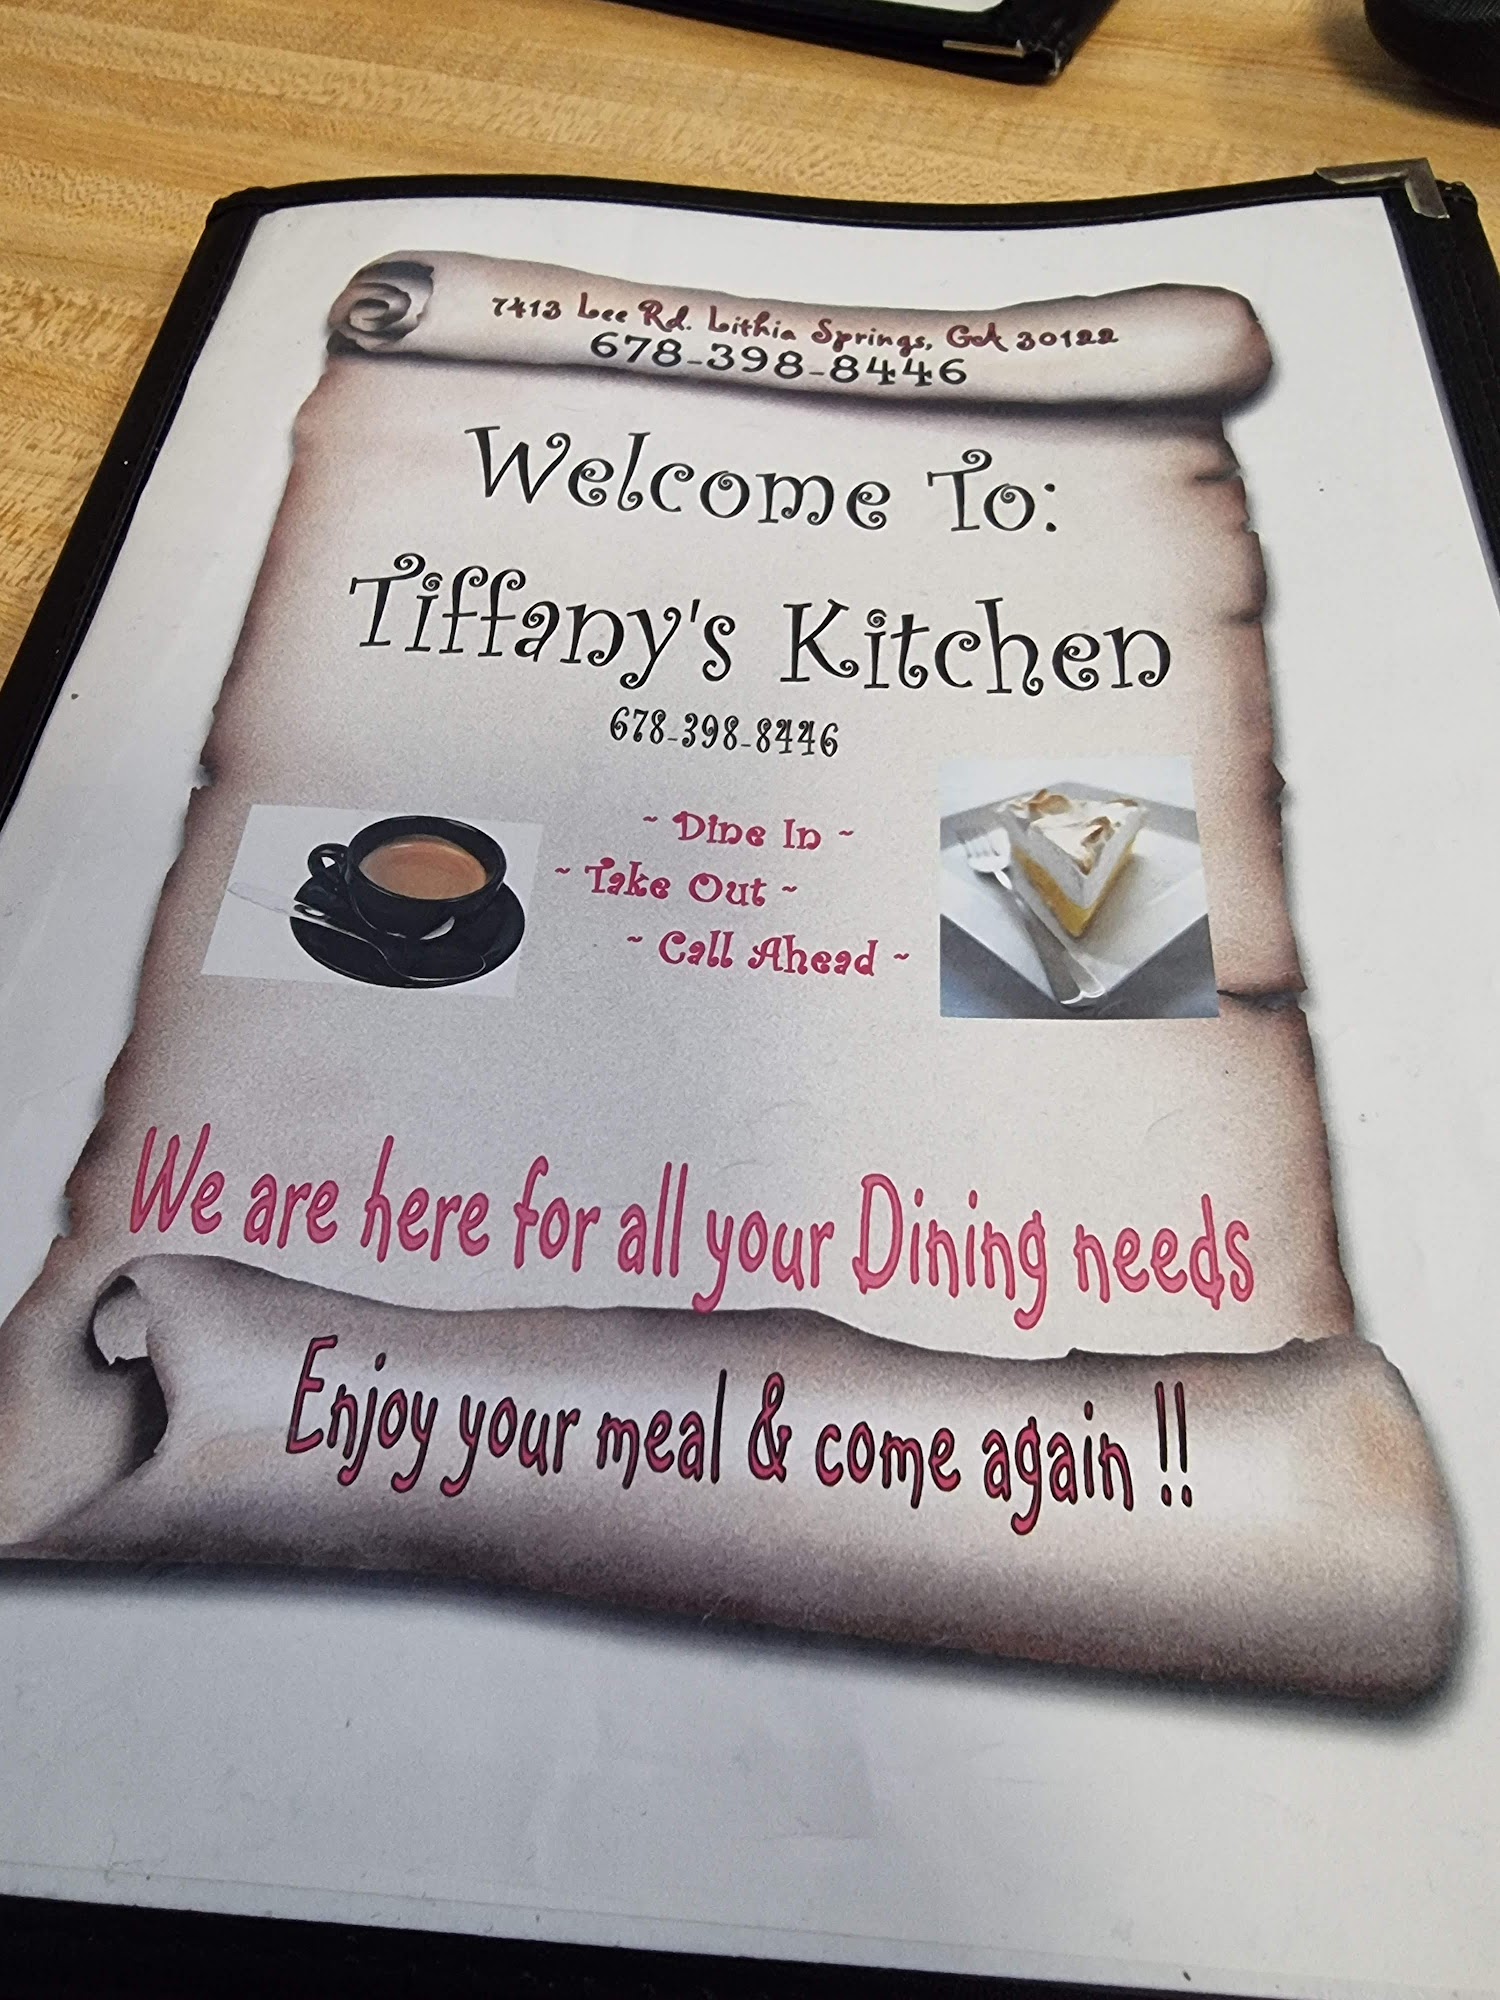 7413 Lee Rd. Lithia Springs, GA 30122
678-398-8446
Welcome To:
Tiffany's Kitchen
678-398-8446
~ Dine In ~
~ Take Out ~
~ Call Ahead ~
We are here for all your Dining needs
Enjoy your meal & come again !!